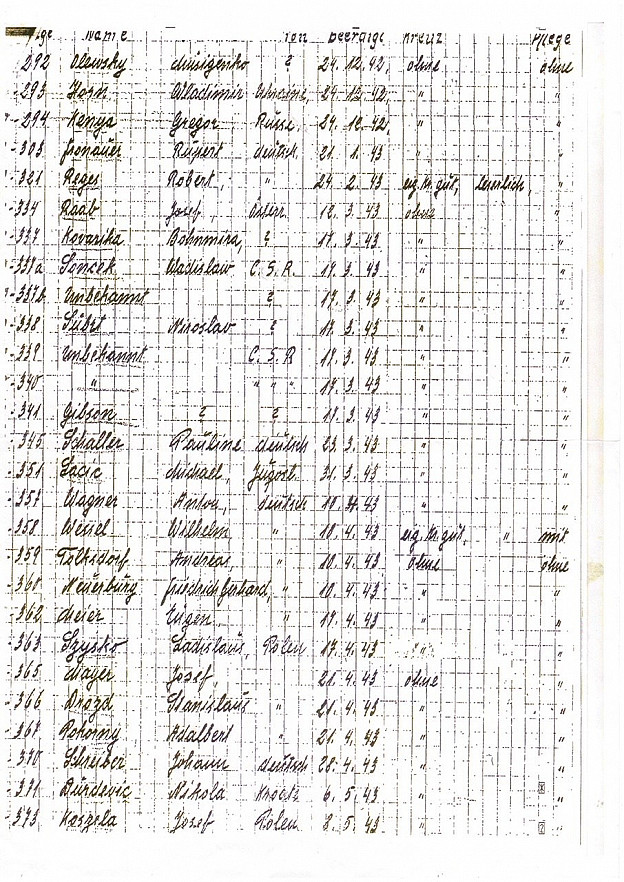 Name beerdigt Kreuz Pflege
292 Olewsky ? 24.12.42, ohne ohne
293 Horn Wladimir Ukraine, 24.12.42, " "
294 Kenya Gregor Russe, 24.12.42, " "
303 Gronauer Rupert deutsch 21. 1. 43 " "
321 Reges Robert, " 24. 2. 43 eig. Kr. gut, leserlich, "
334 Raab Josef, Österr. 12. 3. 43 ohne "
337 Kovarika Bohnmira, ? 17. 3. 43 " "
337a Soncek Wadislaw C.S.R. 17. 3. 43 " "
337b Unbekannt ? 17. 3. 43 " "
338 Subrt Miroslav ? 17. 3. 43 " "
339 Unbekannt C.S.R 17. 3. 43 " "
340 " " " " 17. 3. 43 " "
341 Gibson ? ? 18. 3. 43 " "
345 Schaller Pauline deutsch 23. 3. 43 " "
351 Lacic Michael, Jugosl. 31. 3. 43 " "
357 Wagner Anton, deutsch 10. 4. 43 " "
358 Wessel Wilhelm " 10. 4. 43 eig. Kr. gut, " mit
359 Tolksdorf Andreas, " 10. 4. 43 ohne ohne
360 Neuerburg Friedrich Gerhard, " 10. 4. 43 " "
362 Meier Eugen, " 17. 4. 43 " "
363 Szysko Ladislaus, Polen 17. 4. 43 " "
365 Mayer Josef, 21. 4. 43 ohne "
366 Drozd Stanislaus " 21. 4. 43 " "
367 Pokorny Adalbert " 21. 4. 43 " "
370 Schreiber Johann deutsch 28. 4. 43 " "
371 Durdevic Nikola Kroate 6. 5. 43 " "
373 Koszela Josef Polen 8. 5. 43 " "